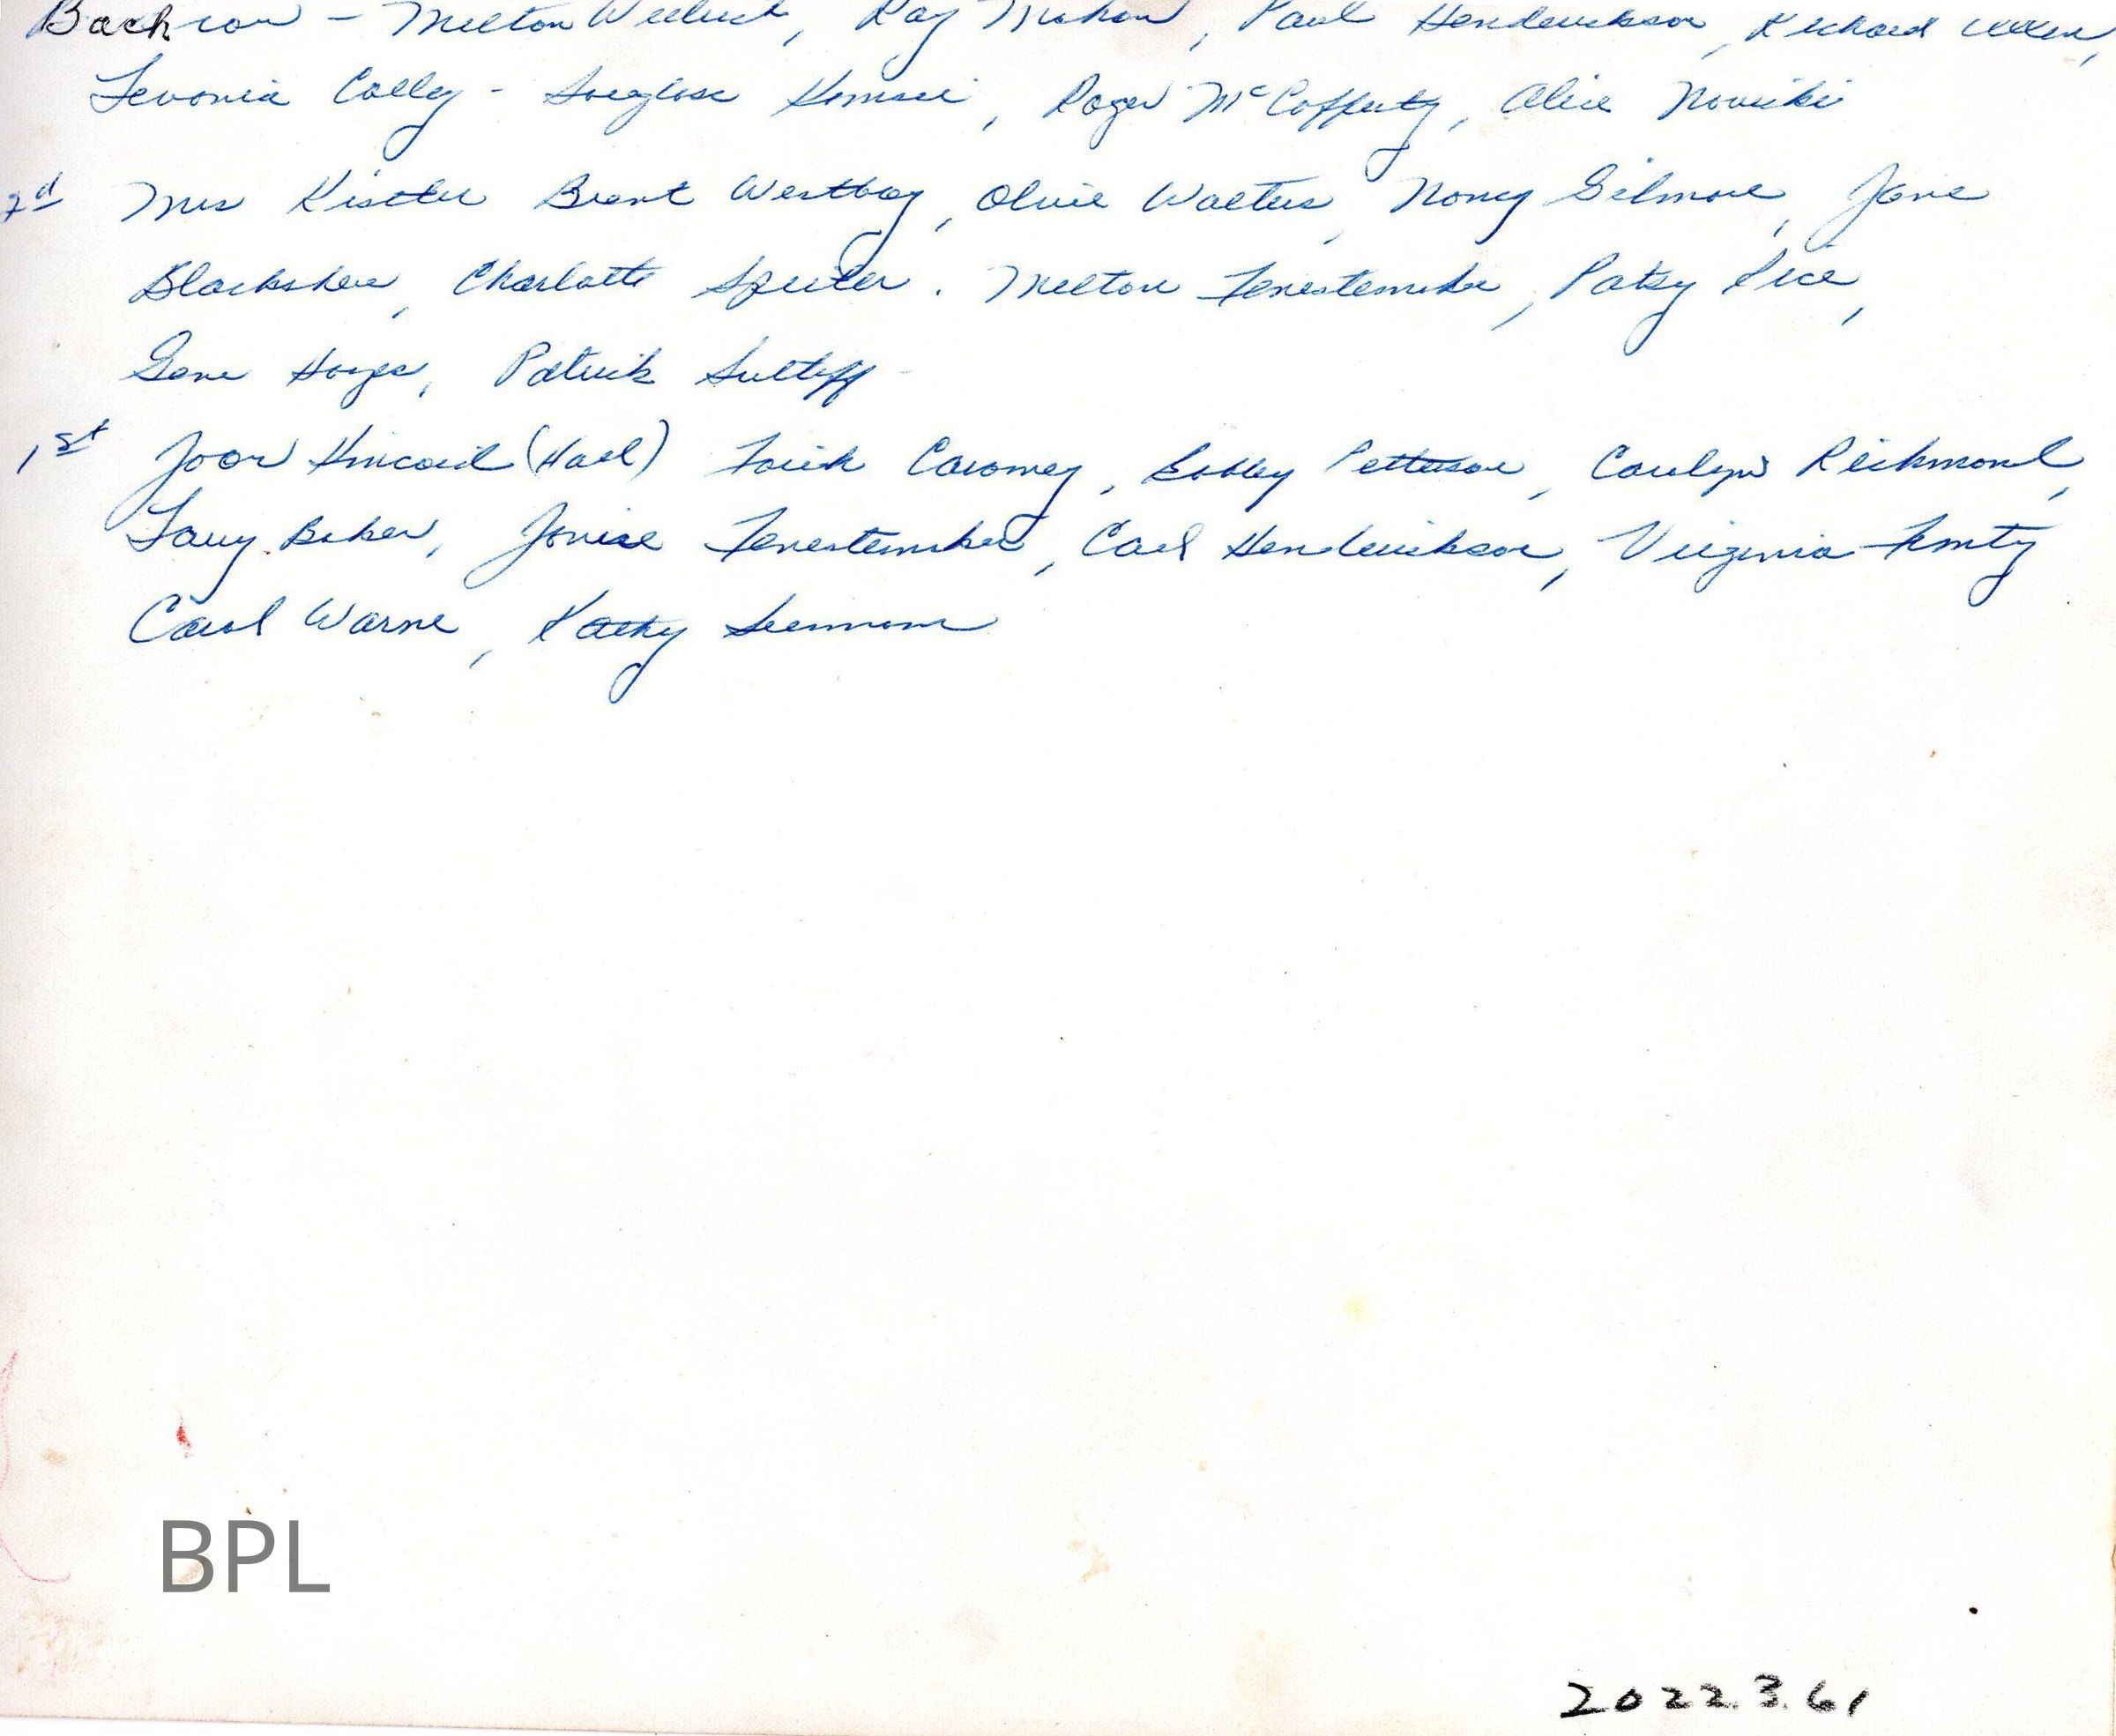 Back row - Melton Wellock, Ray Mahan, Paul Hendrickson, Richard Allen,
Levonia Colley - Douglas Kinsie, Roger McCafferty, Alice Nowiki
2d Mrs Kistler Brant Westbay, Olive Walters, Nancy Gilmore, Jane
Blackshere, Charlotte Spuler. Melton Fenestemaker, Patsy Rice,
Gene Hayes, Patrick Sutliff
1st Joan Kincaid (Hall) Caromey, Bobby Petterson, Carolyn Richmond,
Larry Baker, Janice Fenestemaker, Carl Hendrickson, Virginia
Carol Warne, Kathy
BPL
2022.3.61